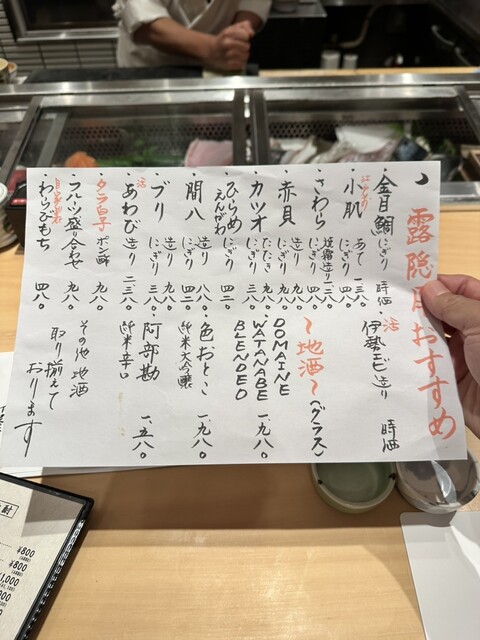 露隠月おすすめ
・金目鯛 にぎり 時価
・小肌 あて 一三八〇
にぎり 四八〇
・さわら 造り
にぎり 四八〇
・赤貝 造り
にぎり
・カツオ 造り 九八〇
たたき 九八〇
・ひらめ
えんがわ にぎり 四二〇
・間八 造り 八八〇
にぎり 四二〇
・ブリ 造り 九八〇
にぎり 三八〇
・活あわび 造り 二三八〇
にぎり
・タラ白子 ポン酢 九八〇
・フルーツ盛り合わせ 九八〇
自家製
・わらびもち 四八〇
・活伊勢エビ 造り 時価
～地酒～(グラス)
・DOMAINE
WATANABE
BLENDED 一、九八〇
・色おとこ
純米大吟醸 一、九八〇
・阿部勘
純米辛口 一、五八〇
その他地酒
取り揃えて
おります
¥800
¥800